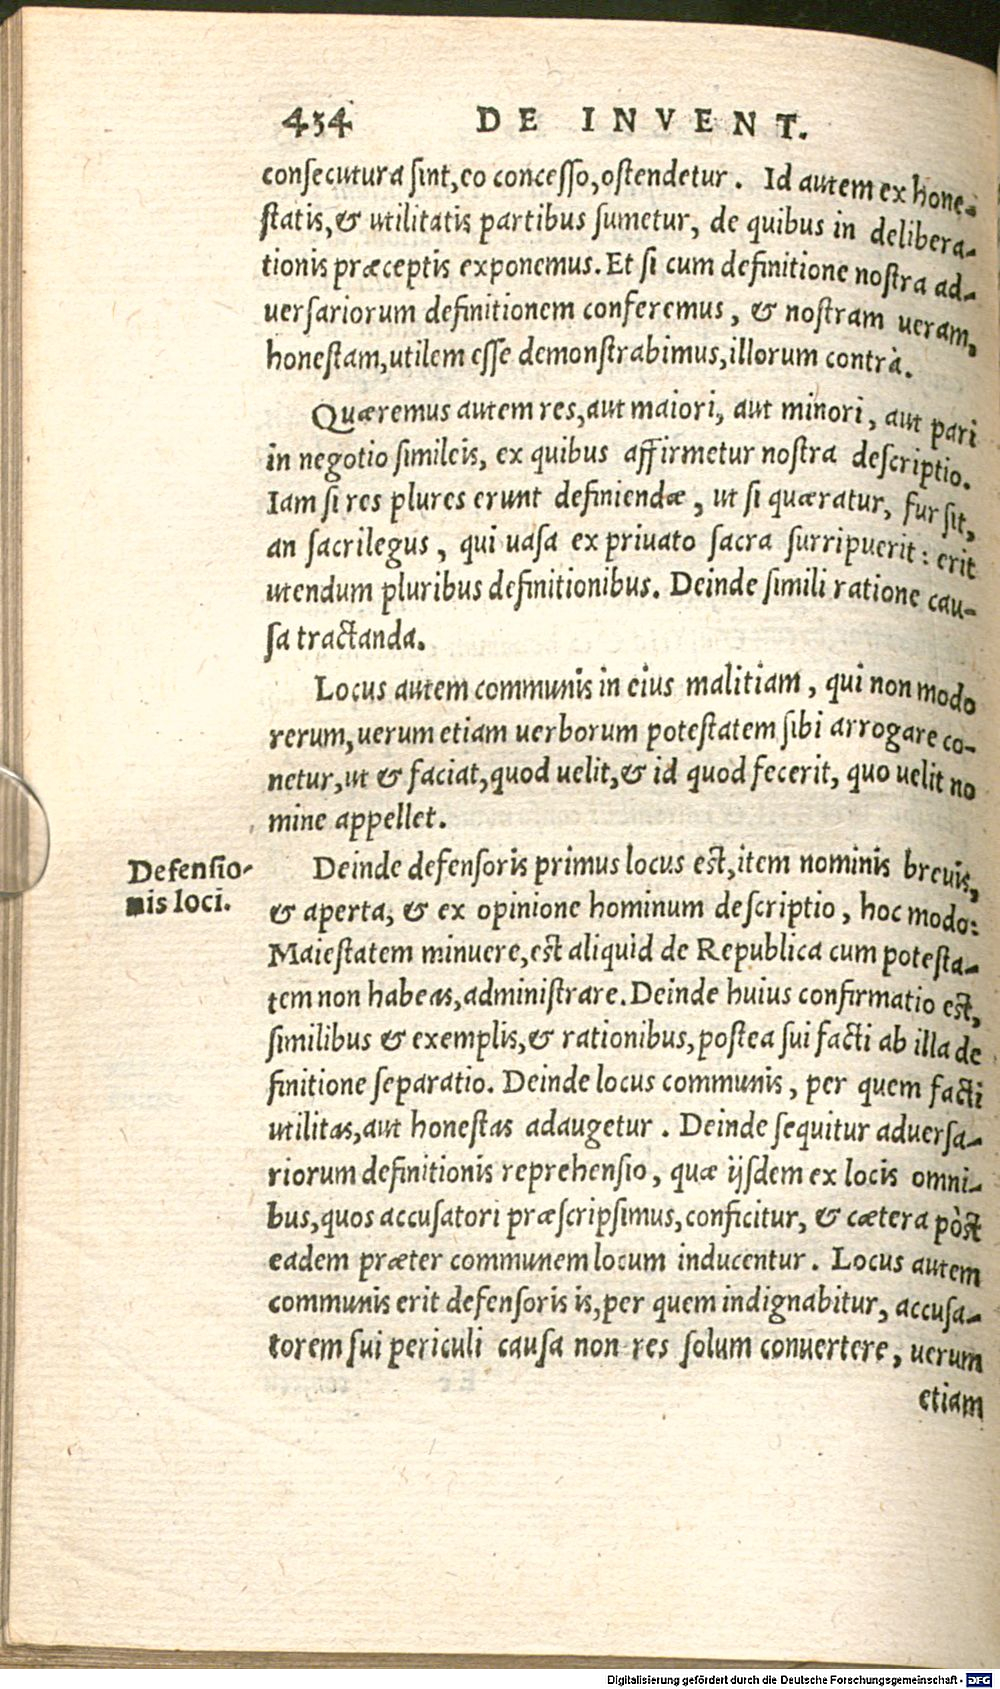 434 DE INVENT.
conſecutura ſint, eo conceſſo, oſtendetur. Id autem ex hone-
ſtatis, & utilitatis partibus ſumetur, de quibus in delibera-
tionis præceptis exponemus. Et ſi cum definitione noſtra ad-
uerſariorum definitionem conferemus, & noſtram ueram,
honeſtam, utilem eſſe demonſtrabimus, illorum contrà.
Quæremus autem res, aut maiori, aut minori, aut pari
in negotio ſimileis, ex quibus affirmetur noſtra deſcriptio.
Iam ſi res plures erunt definiendæ, ut ſi quæratur, fur ſit,
an ſacrilegus, qui uaſa ex priuato ſacra ſurripuerit: erit
utendum pluribus definitionibus. Deinde ſimili ratione cau-
ſa tractanda.
Locus autem communis in eius malitiam, qui non modo
rerum, uerum etiam uerborum poteſtatem ſibi arrogare co-
netur, ut & faciat, quod uelit, & id quod fecerit, quo uelit no
mine appellet.
Defenſio-
nis loci.
Deinde defenſoris primus locus eſt, item nominis breuis,
& aperta, & ex opinione hominum deſcriptio, hoc modo:
Maieſtatem minuere, eſt aliquid de Republica cum poteſta-
tem non habeas, adminiſtrare. Deinde huius confirmatio eſt,
ſimilibus & exemplis, & rationibus, poſtea ſui facti ab illa de
finitione ſeparatio. Deinde locus communis, per quem facti
utilitas, aut honeſtas adaugetur. Deinde ſequitur aduerſa-
riorum definitionis reprehenſio, quæ ijſdem ex locis omni-
bus, quos accuſatori præſcripſimus, conficitur, & cætera pòſt
eadem præter communem locum inducentur. Locus autem
communis erit defenſoris is, per quem indignabitur, accuſa-
torem ſui periculi cauſa non res ſolum conuertere, uerum
etiam
Digitalisierung gefördert durch die Deutsche Forschungsgemeinschaft - DFG